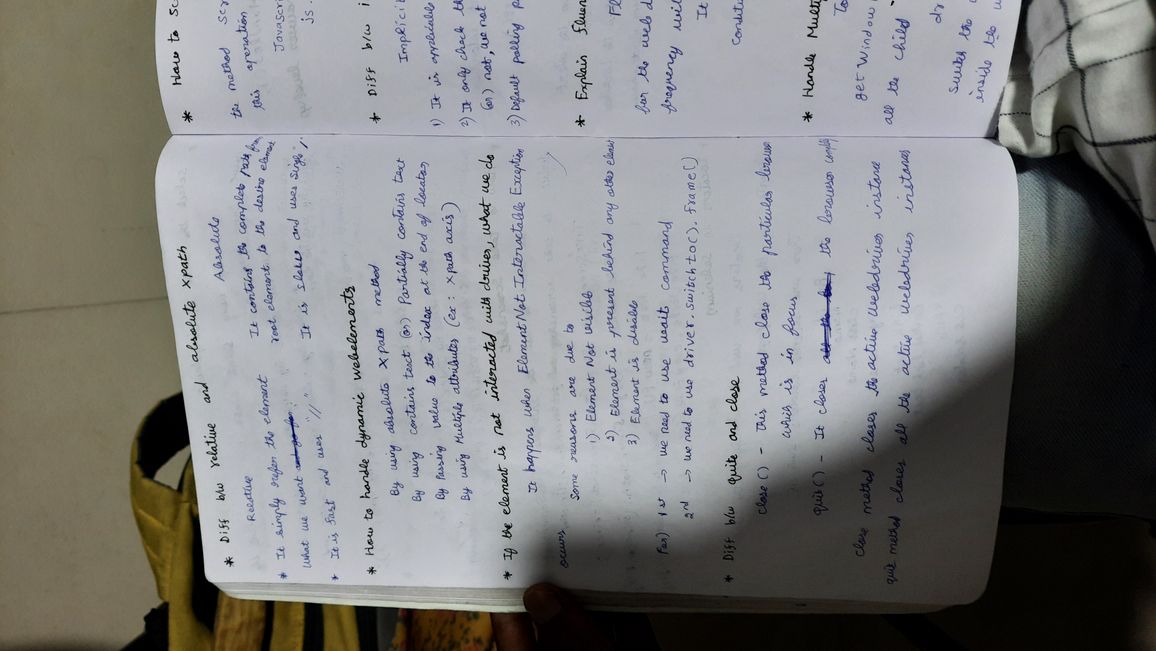 * Diff b/w relative and absolute xpath
Relative Absolute
* It simply refers the element It contains the complete path from
what we want root element to the desire element
* It is fast and uses "//" It is slower and uses single /
* How to handle dynamic webelements
By using absolute xpath method
By using contains text (or) Partially contains text
By passing value to the index at the end of locator
By using Multiple attributes (ex: xpath axis)
* If the element is not interacted with driver, what we do
It happens when Element Not Interactable Exception
occurs
Some reasons are due to
1) Element Not visible
2) Element is present behind any other element
3) Element is disable
For) 1st -> we need to use wait command
2nd -> we need to use driver.switchto().frame()
* Diff b/w quite and close
close() - This method close the particular browser
which is in focus
quit() - It closes the browser
close method closes the active webdriver instance
quit method closes all the active webdriver instances
* How to Sc
the method scr
this operation
Javascr
js.
* Diff b/w i
Implicit
1) It is applicable
2) It only check th
(or) not, we not
3) Default polling p
* Explain fluen
Fl
for the web
frequency
It
condit
* Handle Mult
To
get window
all the child
dr
switch the
inside the w